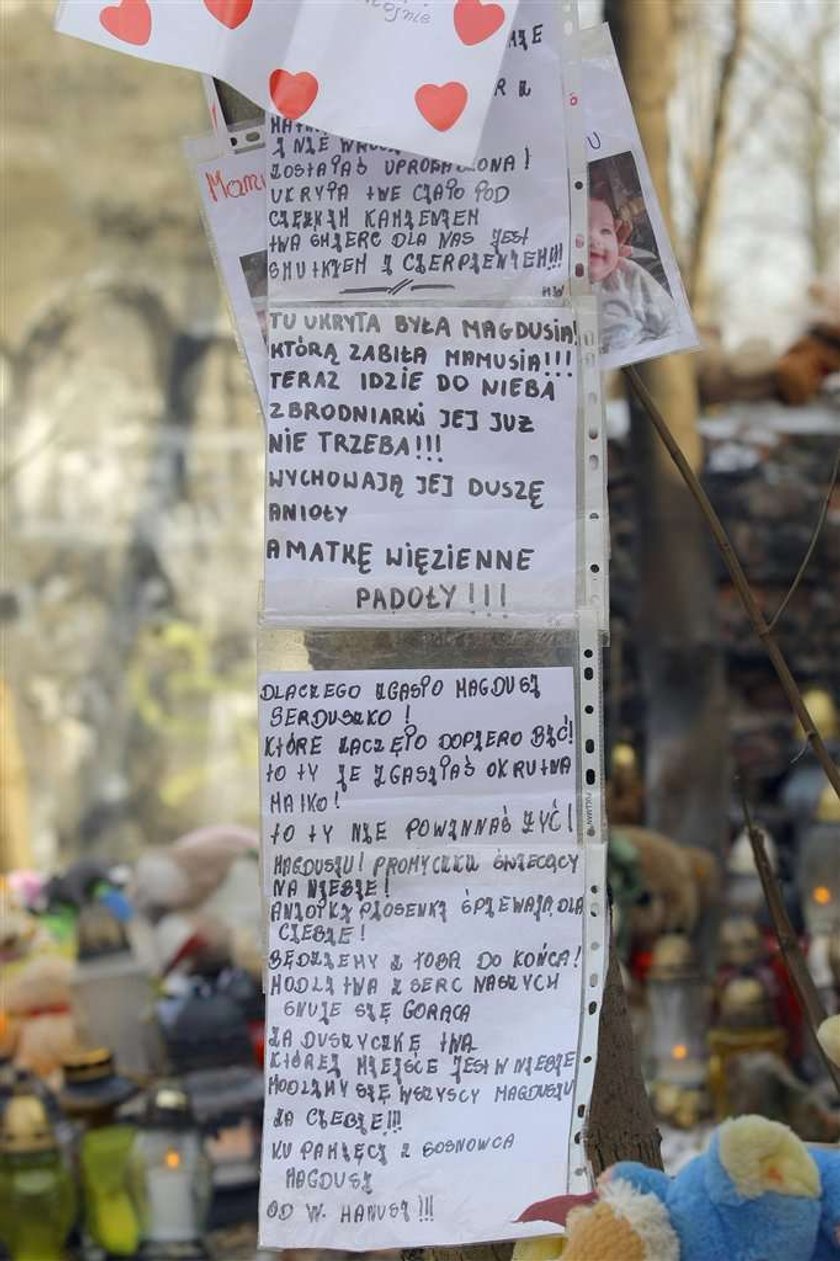 MAMI
ZOSTAŁAŚ UPROWADZONA!
UKRYŁA TWE CIAŁO POD
CIĘŻKIM KAMIENIEM
TWA ŚMIERĆ DLA NAS JEST
SMUTKIEM I CIERPIENIEM!!!
TU UKRYTA BYŁA MAGDUSIA!
KTÓRĄ ZABIŁA MAMUSIA!!!
TERAZ IDZIE DO NIEBA
ZBRODNIARKI JEJ JUŻ
NIE TRZEBA!!!
WYCHOWAJĄ JEJ DUSZĘ
ANIOŁY
A MATKĘ WIĘZIENNE
PADOŁY!!!
DLACZEGO ZGASŁO MAGDUSI
SERDUSZKO!
KTÓRE ZACZĘŁO DOPIERO BIĆ!
TO TY JE ZGASIŁAŚ OKRUTNA
MATKO!
TO TY NIE POWINNAŚ ŻYĆ!
MAGDUSIU! PROMYCZKU ŚWIECĄCY
NA NIEBIE!
ANIOŁKI PIOSENKI ŚPIEWAJĄ DLA
CIEBIE!
BĘDZIEMY Z TOBĄ DO KOŃCA!
MODLITWA Z SERC NASZYCH
SNUJE SIĘ GORĄCA
ZA DUSZYCZKĘ TWĄ
KTÓREJ MIEJSCE JEST W NIEBIE
MODLIMY SIĘ WSZYSCY MAGDUSIU
ZA CIEBIE!!!
KU PAMIĘCI Z SOSNOWCA
MAGDUSI
OD W. HANUSI!!!